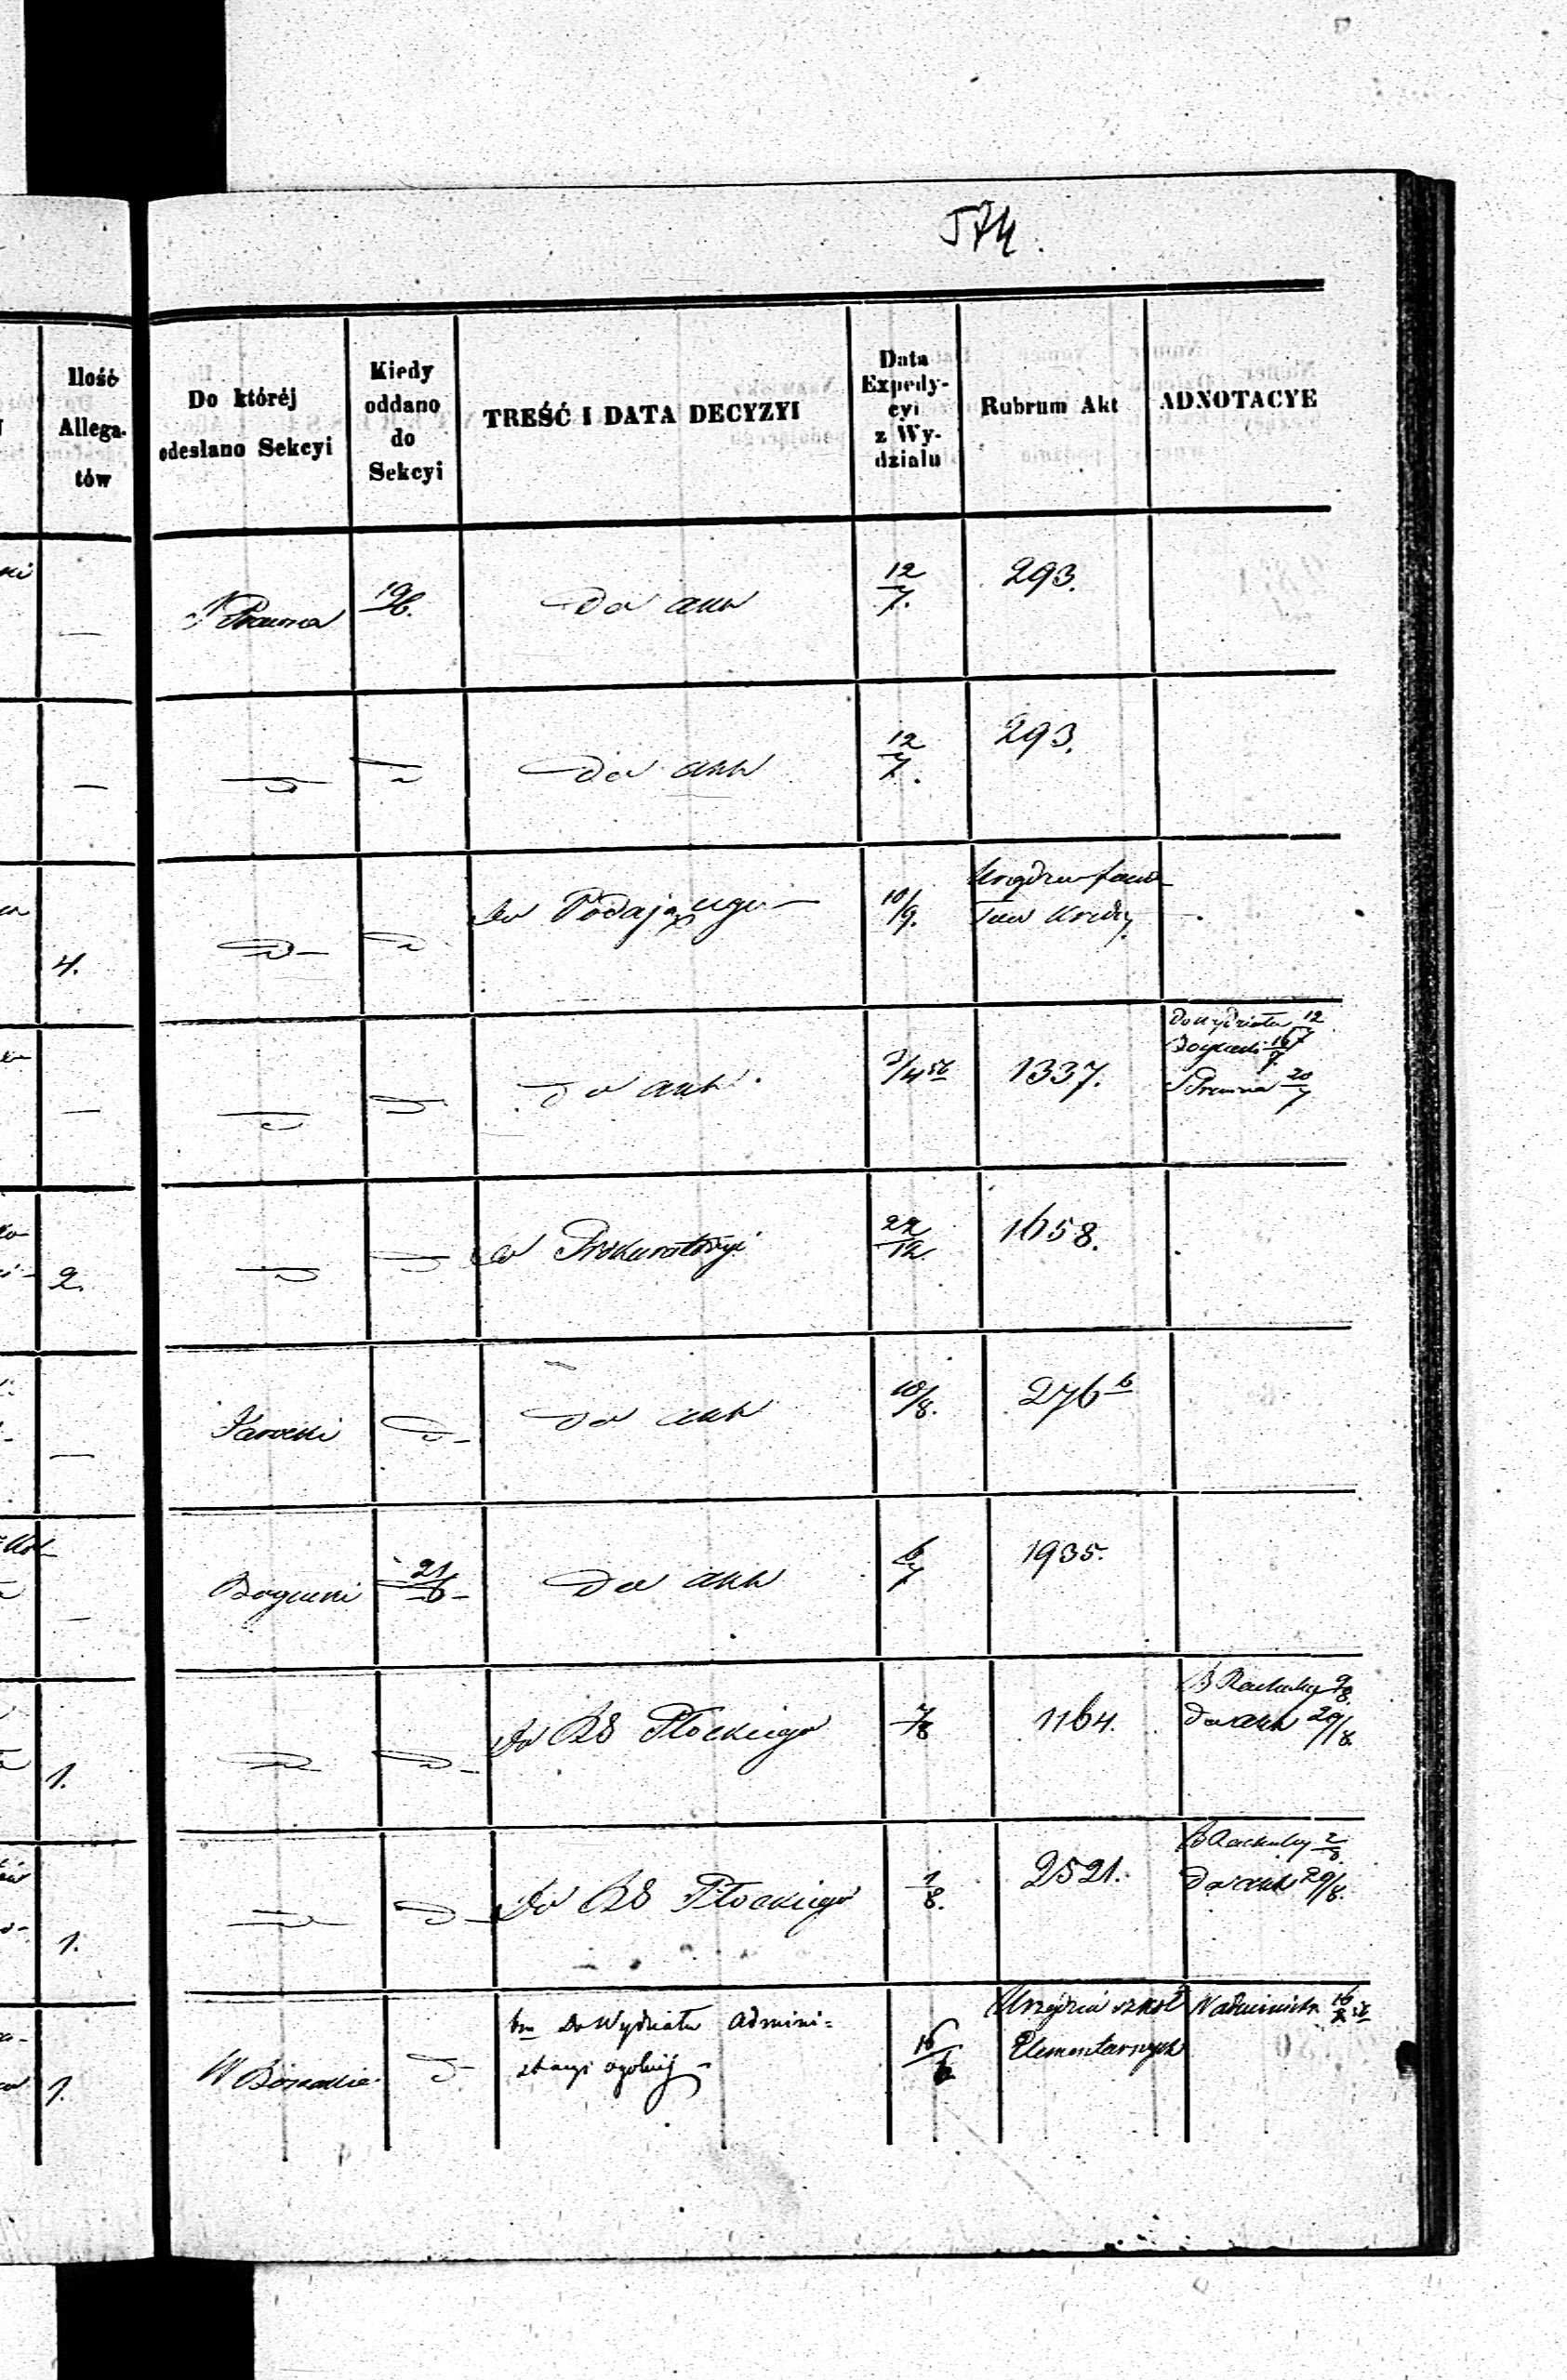 574.
Ilość
Allega-
tów
Do któréj
odesłano Sekcyi
Kiedy
oddano
do
Sekcyi
TREŚĆ I DATA DECYZYI
Data
Expedy-
cyi
z Wy-
działu
Rubrum Akt
ADNOTACYE
—
Prawna
19/6.
Do akt
12/7.
293.
—
Do akt
12/7.
293.
4.
do Podającego —
10/9.
—
do akt.
1337.
Do wydziału 12/7
Bogucki 16/7
Prawna 20/7
2.
do Prokuratoryi
22/12
1658.
—
Do akt
10/8.
276 b
—
Bogucki
21/6 —
Do akt
6/7
1935.
1.
do RG Płockiego
7/8
1164.
B Rachuby 9/8.
Do akt 29/8.
1.
Do RG Płockiego
1/8.
2521.
B Rachuby 2/8.
Do akt 29/8.
1.
do Wydziału Admini=
stracyi ogólnéj —
16/6
Urządzeń szkół
Elementarnych